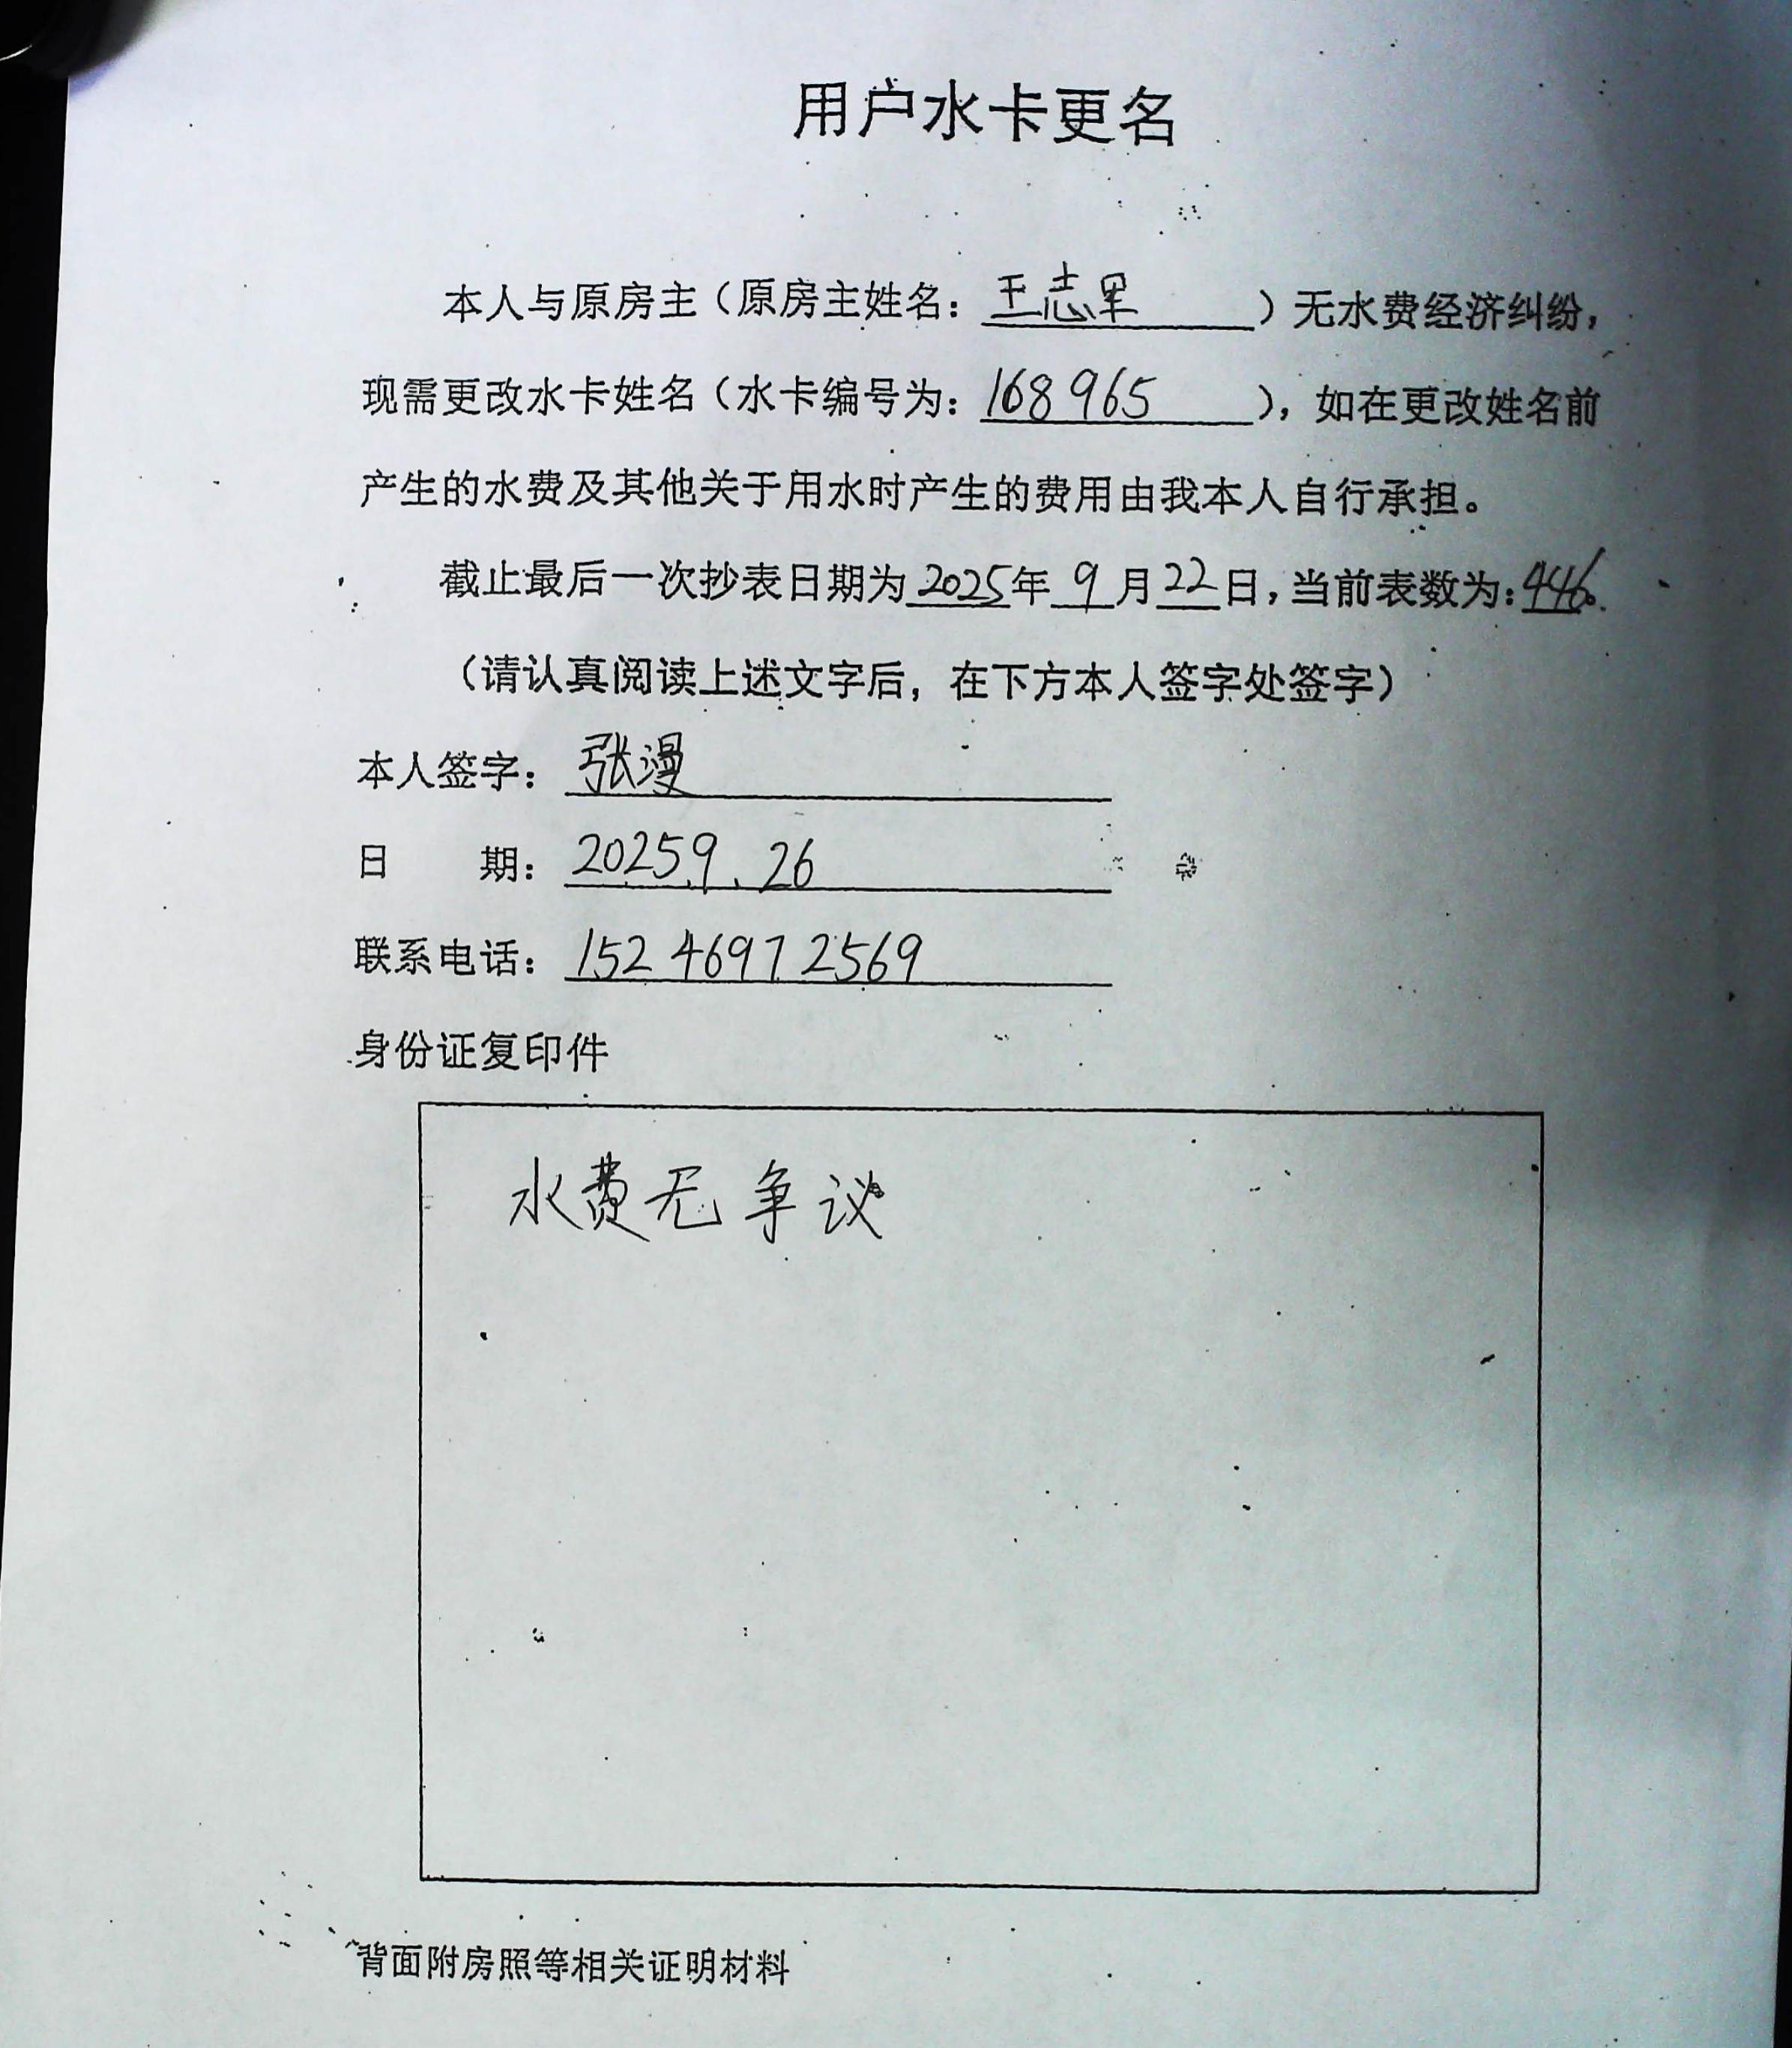 用户水卡更名
本人与原房主（原房主姓名：王志军）无水费经济纠纷，
现需更改水卡姓名（水卡编号为：168965），如在更改姓名前
产生的水费及其他关于用水时产生的费用由我本人自行承担。
截止最后一次抄表日期为2025年9月22日，当前表数为：446。
（请认真阅读上述文字后，在下方本人签字处签字）
本人签字：张漫
日 期：2025.9.26
联系电话：15246972569
身份证复印件
水费无争议
背面附房照等相关证明材料